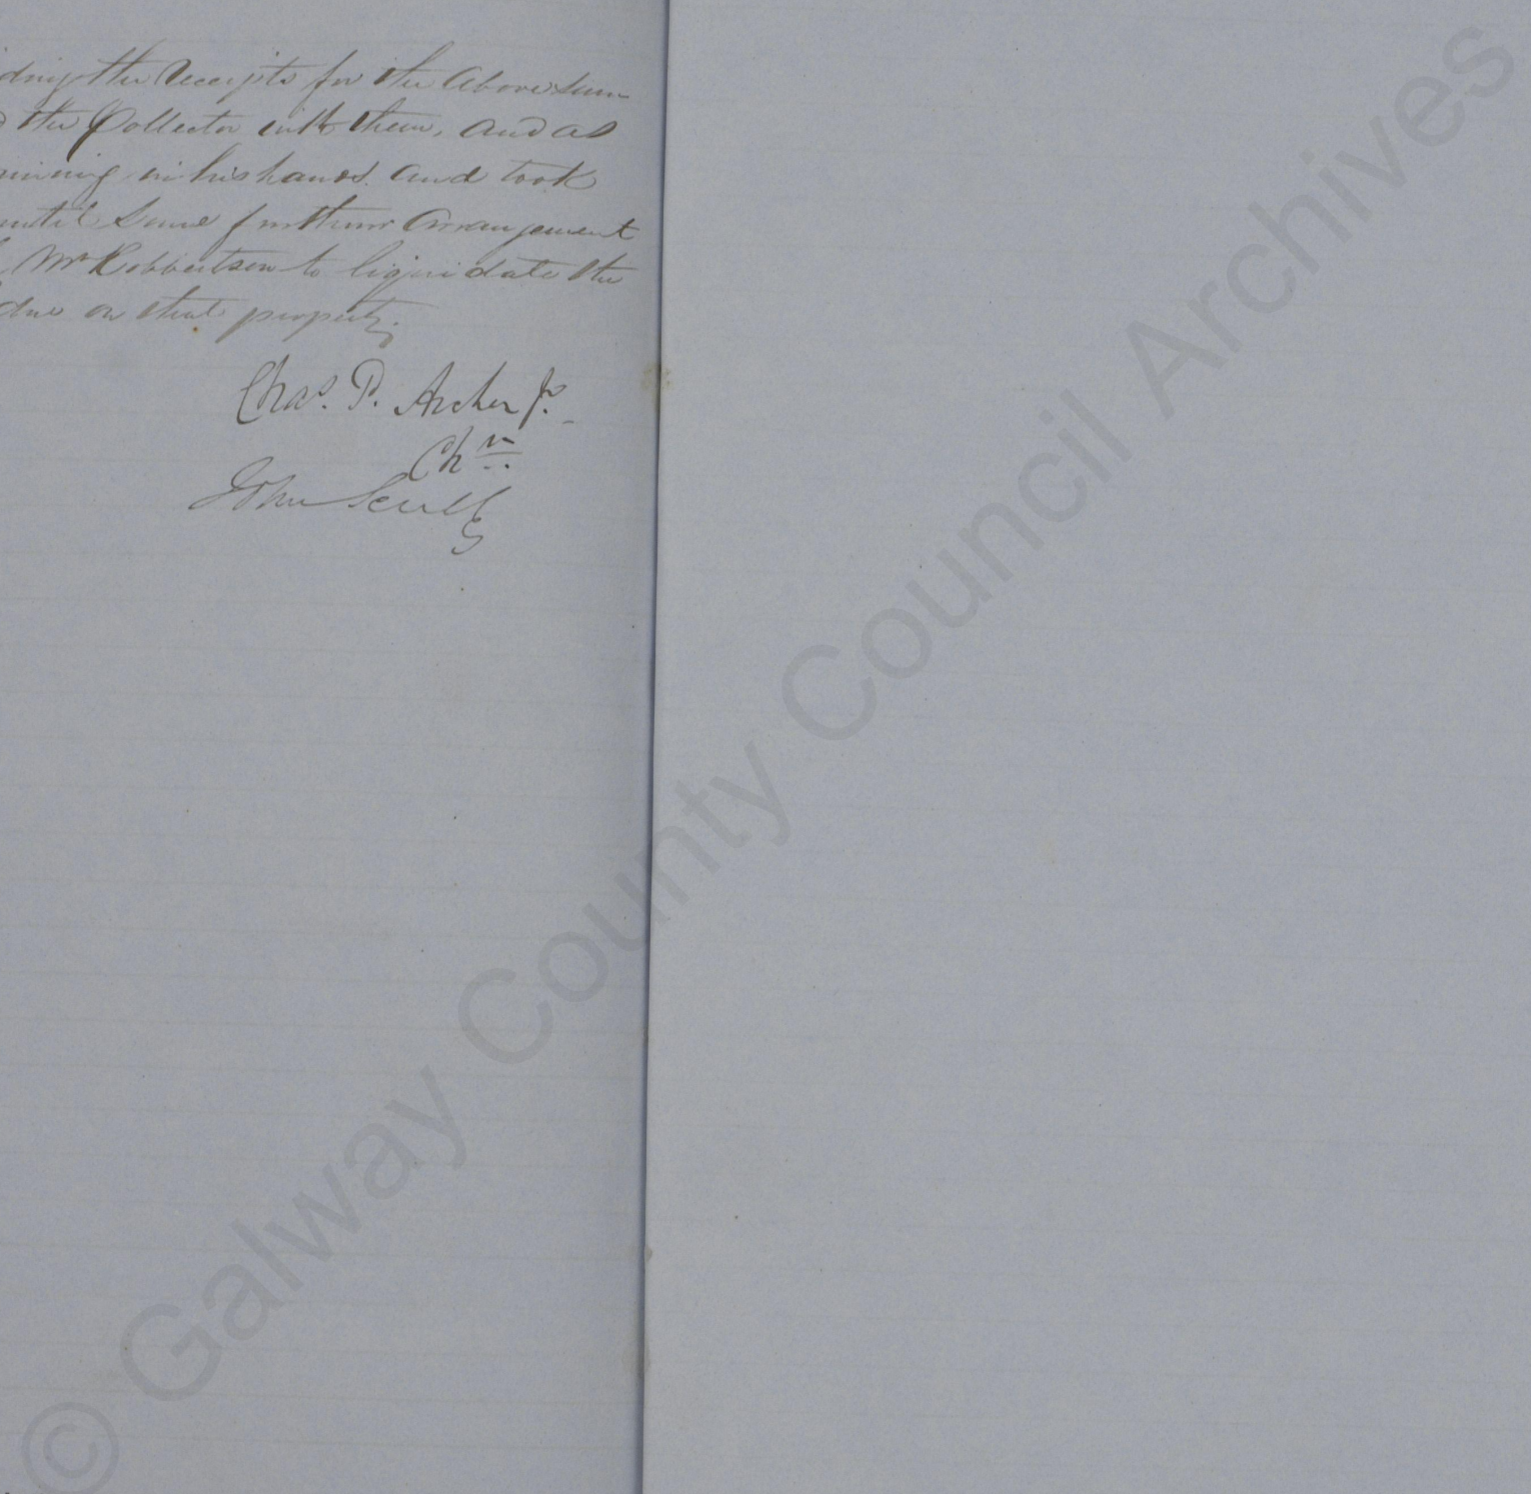 the Receipts for the Above sum
the Collector with them, and as
in his hands and took
until some further Arrangement
Mr Robbertson to liquidate the
due on that property.
Chas. P. Archer Jr.
Chn.
John Scully
© Galway County Council Archives